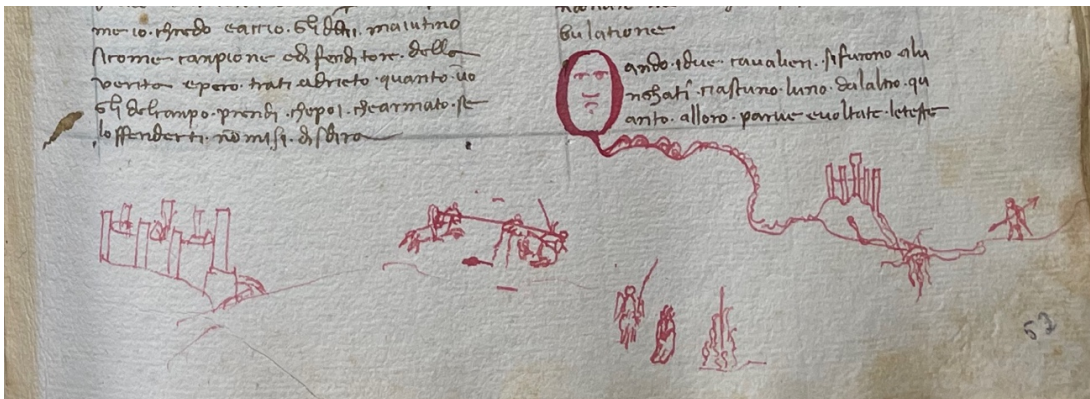 me io. chredo eaccio. Gli ddii. maiutino
sicome campione ed fenditore. dello
verita epero. trati adrieto. quanto uo
Gli delcampo. prendi. chepoi. chearmato. se
lo ffenderti. nō misi. disdira
bulatione
Quando. idue cavalieri. sifurono alu
nghatī. ciascuno. luno. dalaltro. qu
anto. alloro. parve evoltate. leteste
52